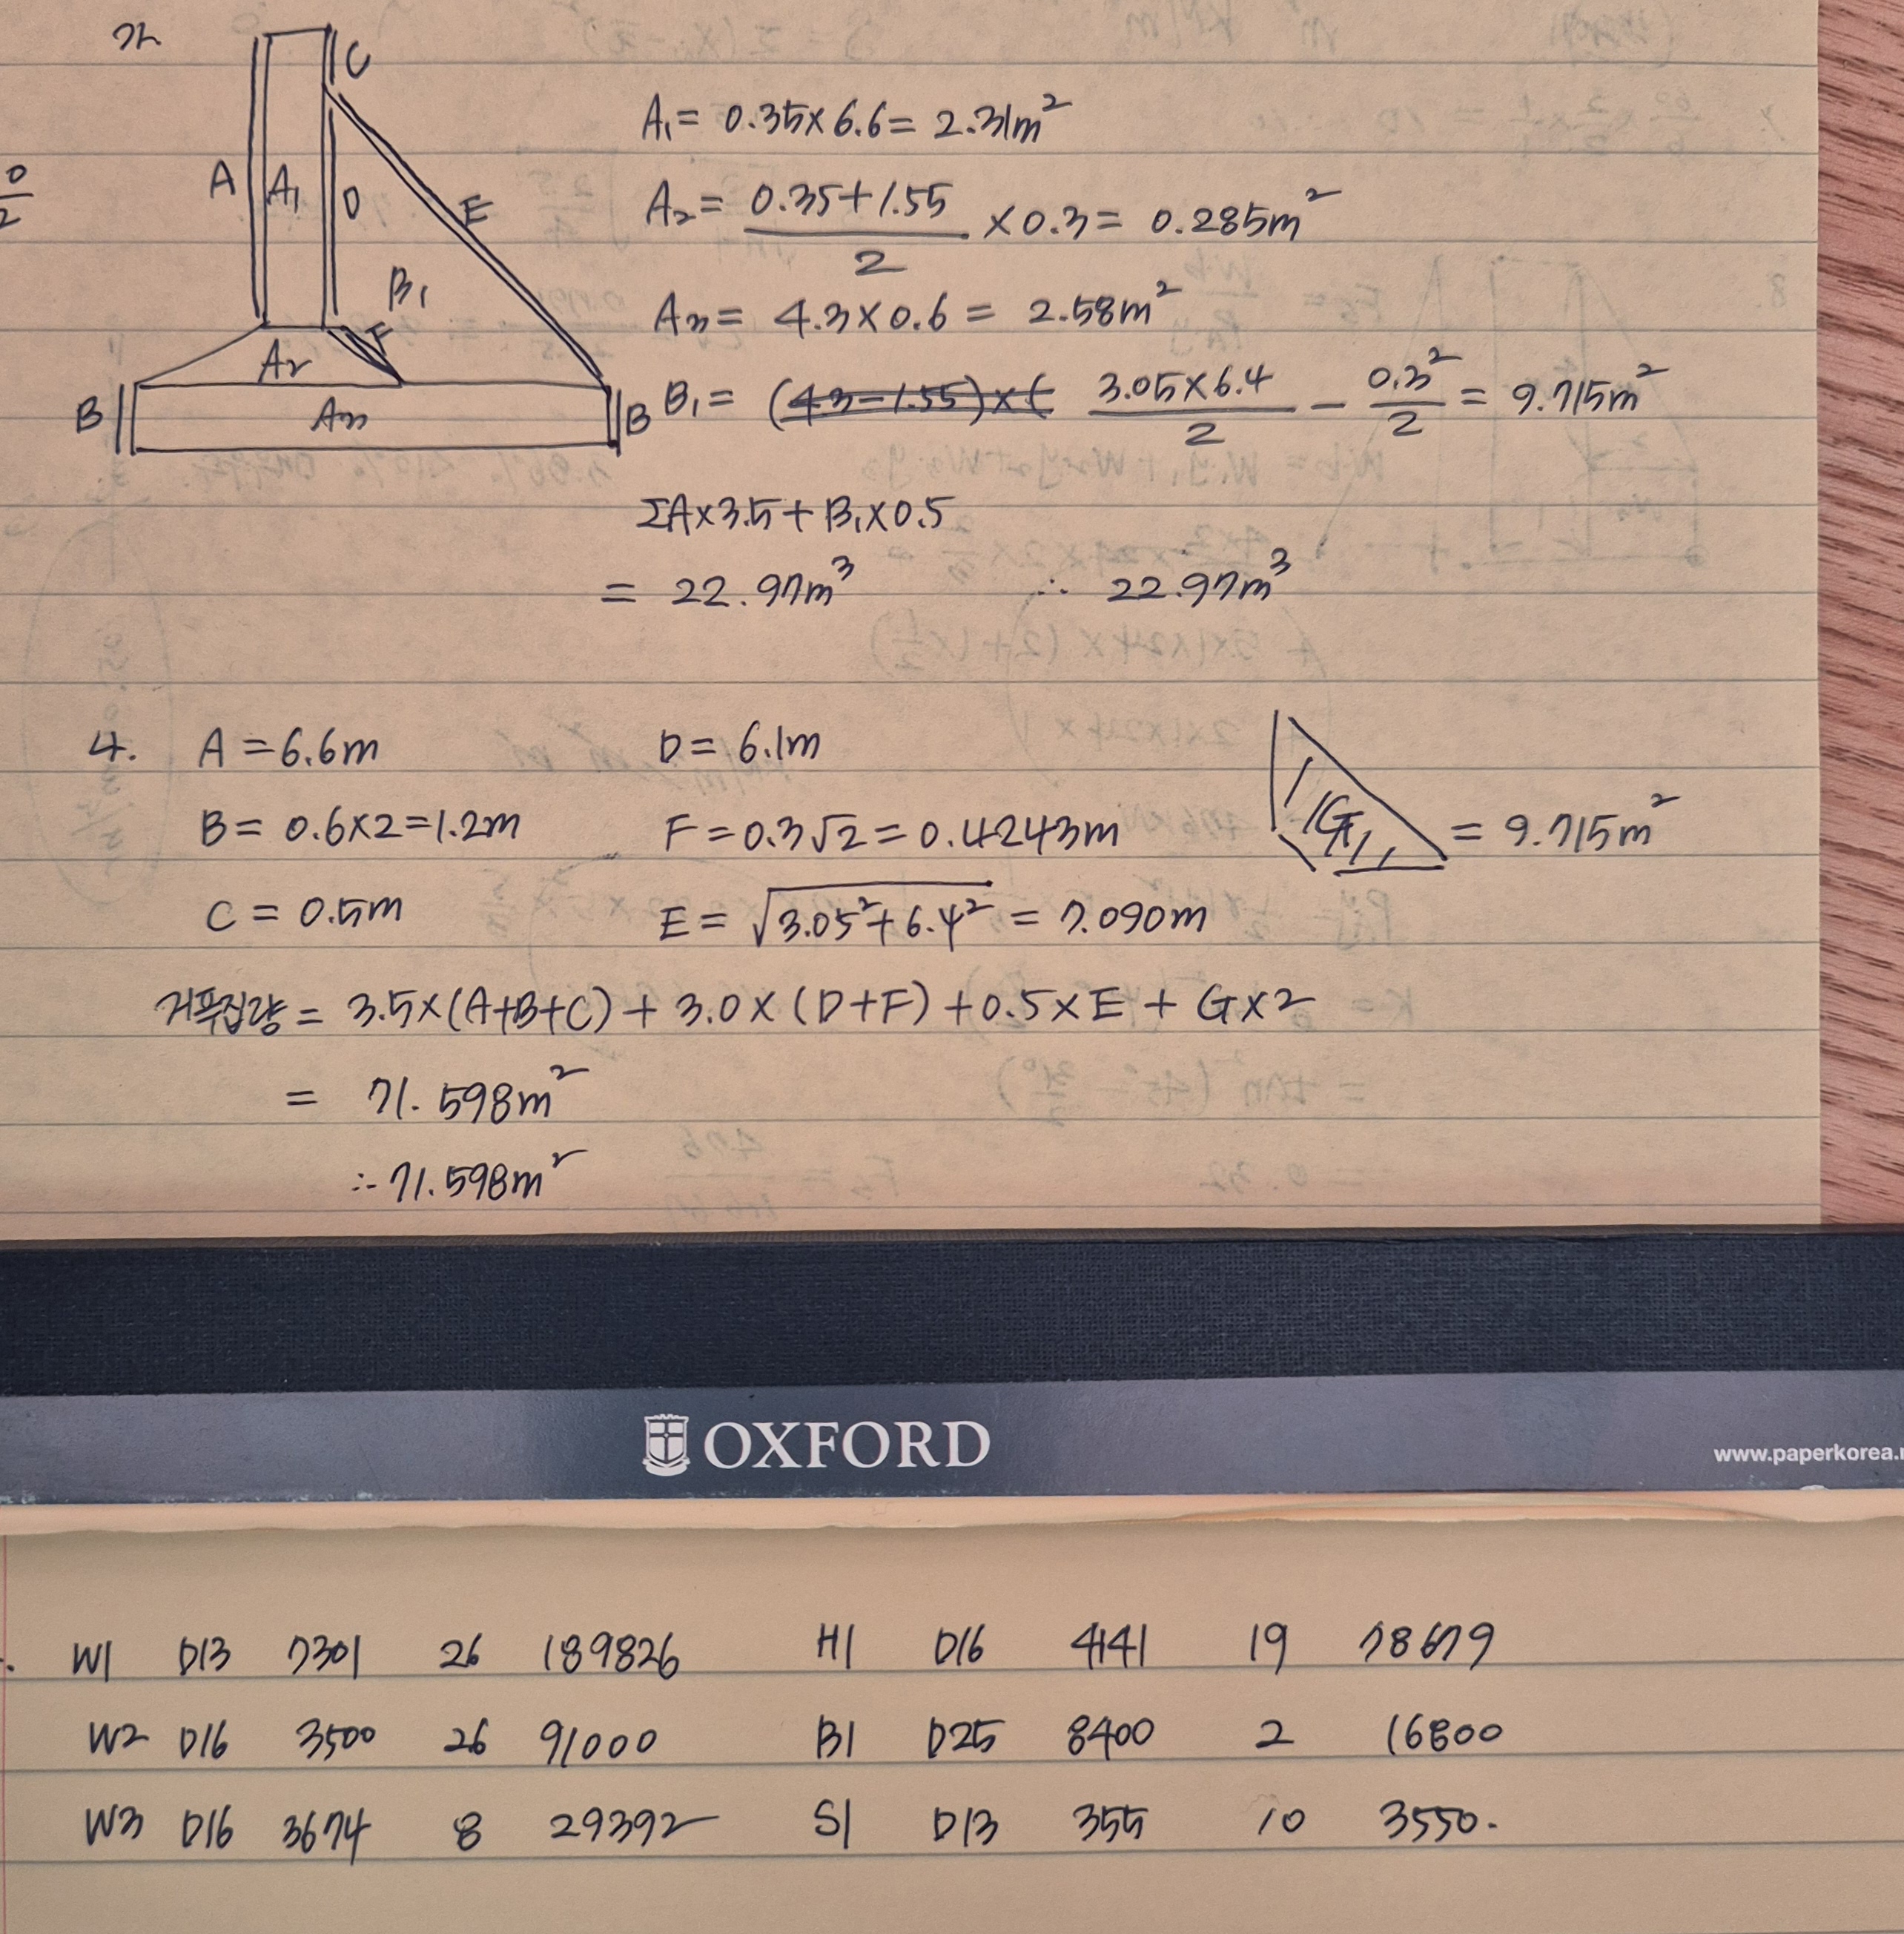 가
C
A₁ = 0.35×6.6 = 2.31m²
A A₁ D E
A₂ = (0.35+1.55)/2 ×0.3 = 0.285m²
B₁
F
A₃ = 4.3×0.6 = 2.58m²
A₂
B A₃ B
B₁ = (4.3-1.55)×( 3.05×6.4/2 - 0.3²/2 = 9.715m²
ΣA×3.5+B₁×0.5
= 22.97m³ ∴ 22.97m³
4. A = 6.6m D = 6.1m
B = 0.6×2=1.2m F = 0.3√2 = 0.4243m
G = 9.715m²
C = 0.5m E = √(3.05²+6.4²) = 7.090m
거푸집량 = 3.5×(A+B+C) + 3.0×(D+F) + 0.5×E + G×2
= 71.598m²
∴ 71.598m²
OXFORD
www.paperkorea.
W1 D13 7301 26 189826 H1 D16 4141 19 78679
W2 D16 3500 26 91000 B1 D25 8400 2 16800
W3 D16 3674 8 29392 S1 D13 355 10 3550.